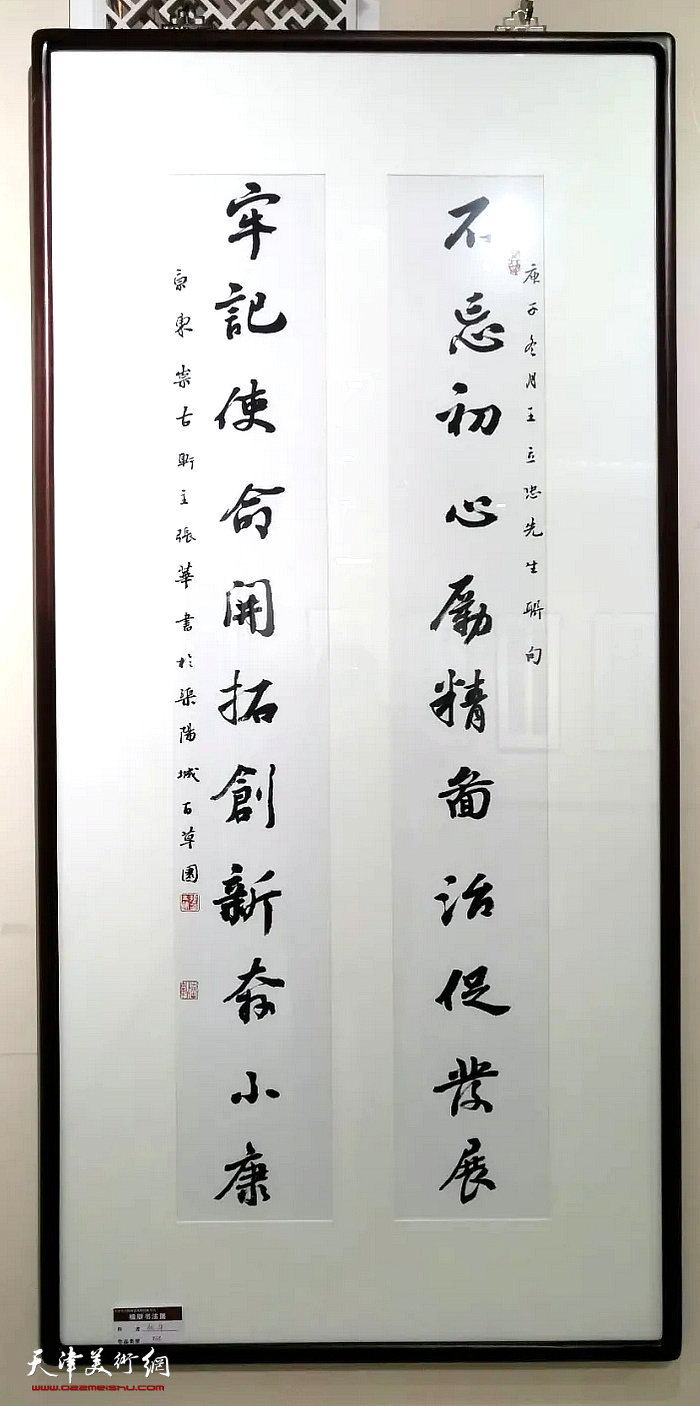 庚子冬月王立忠先生聯句
不忘初心勵精圖治促發展
牢記使命開拓創新奔小康
京東崇古軒主張華書於渠陽城百草園
楹联书法展
天津美術網
www.022meishu.com